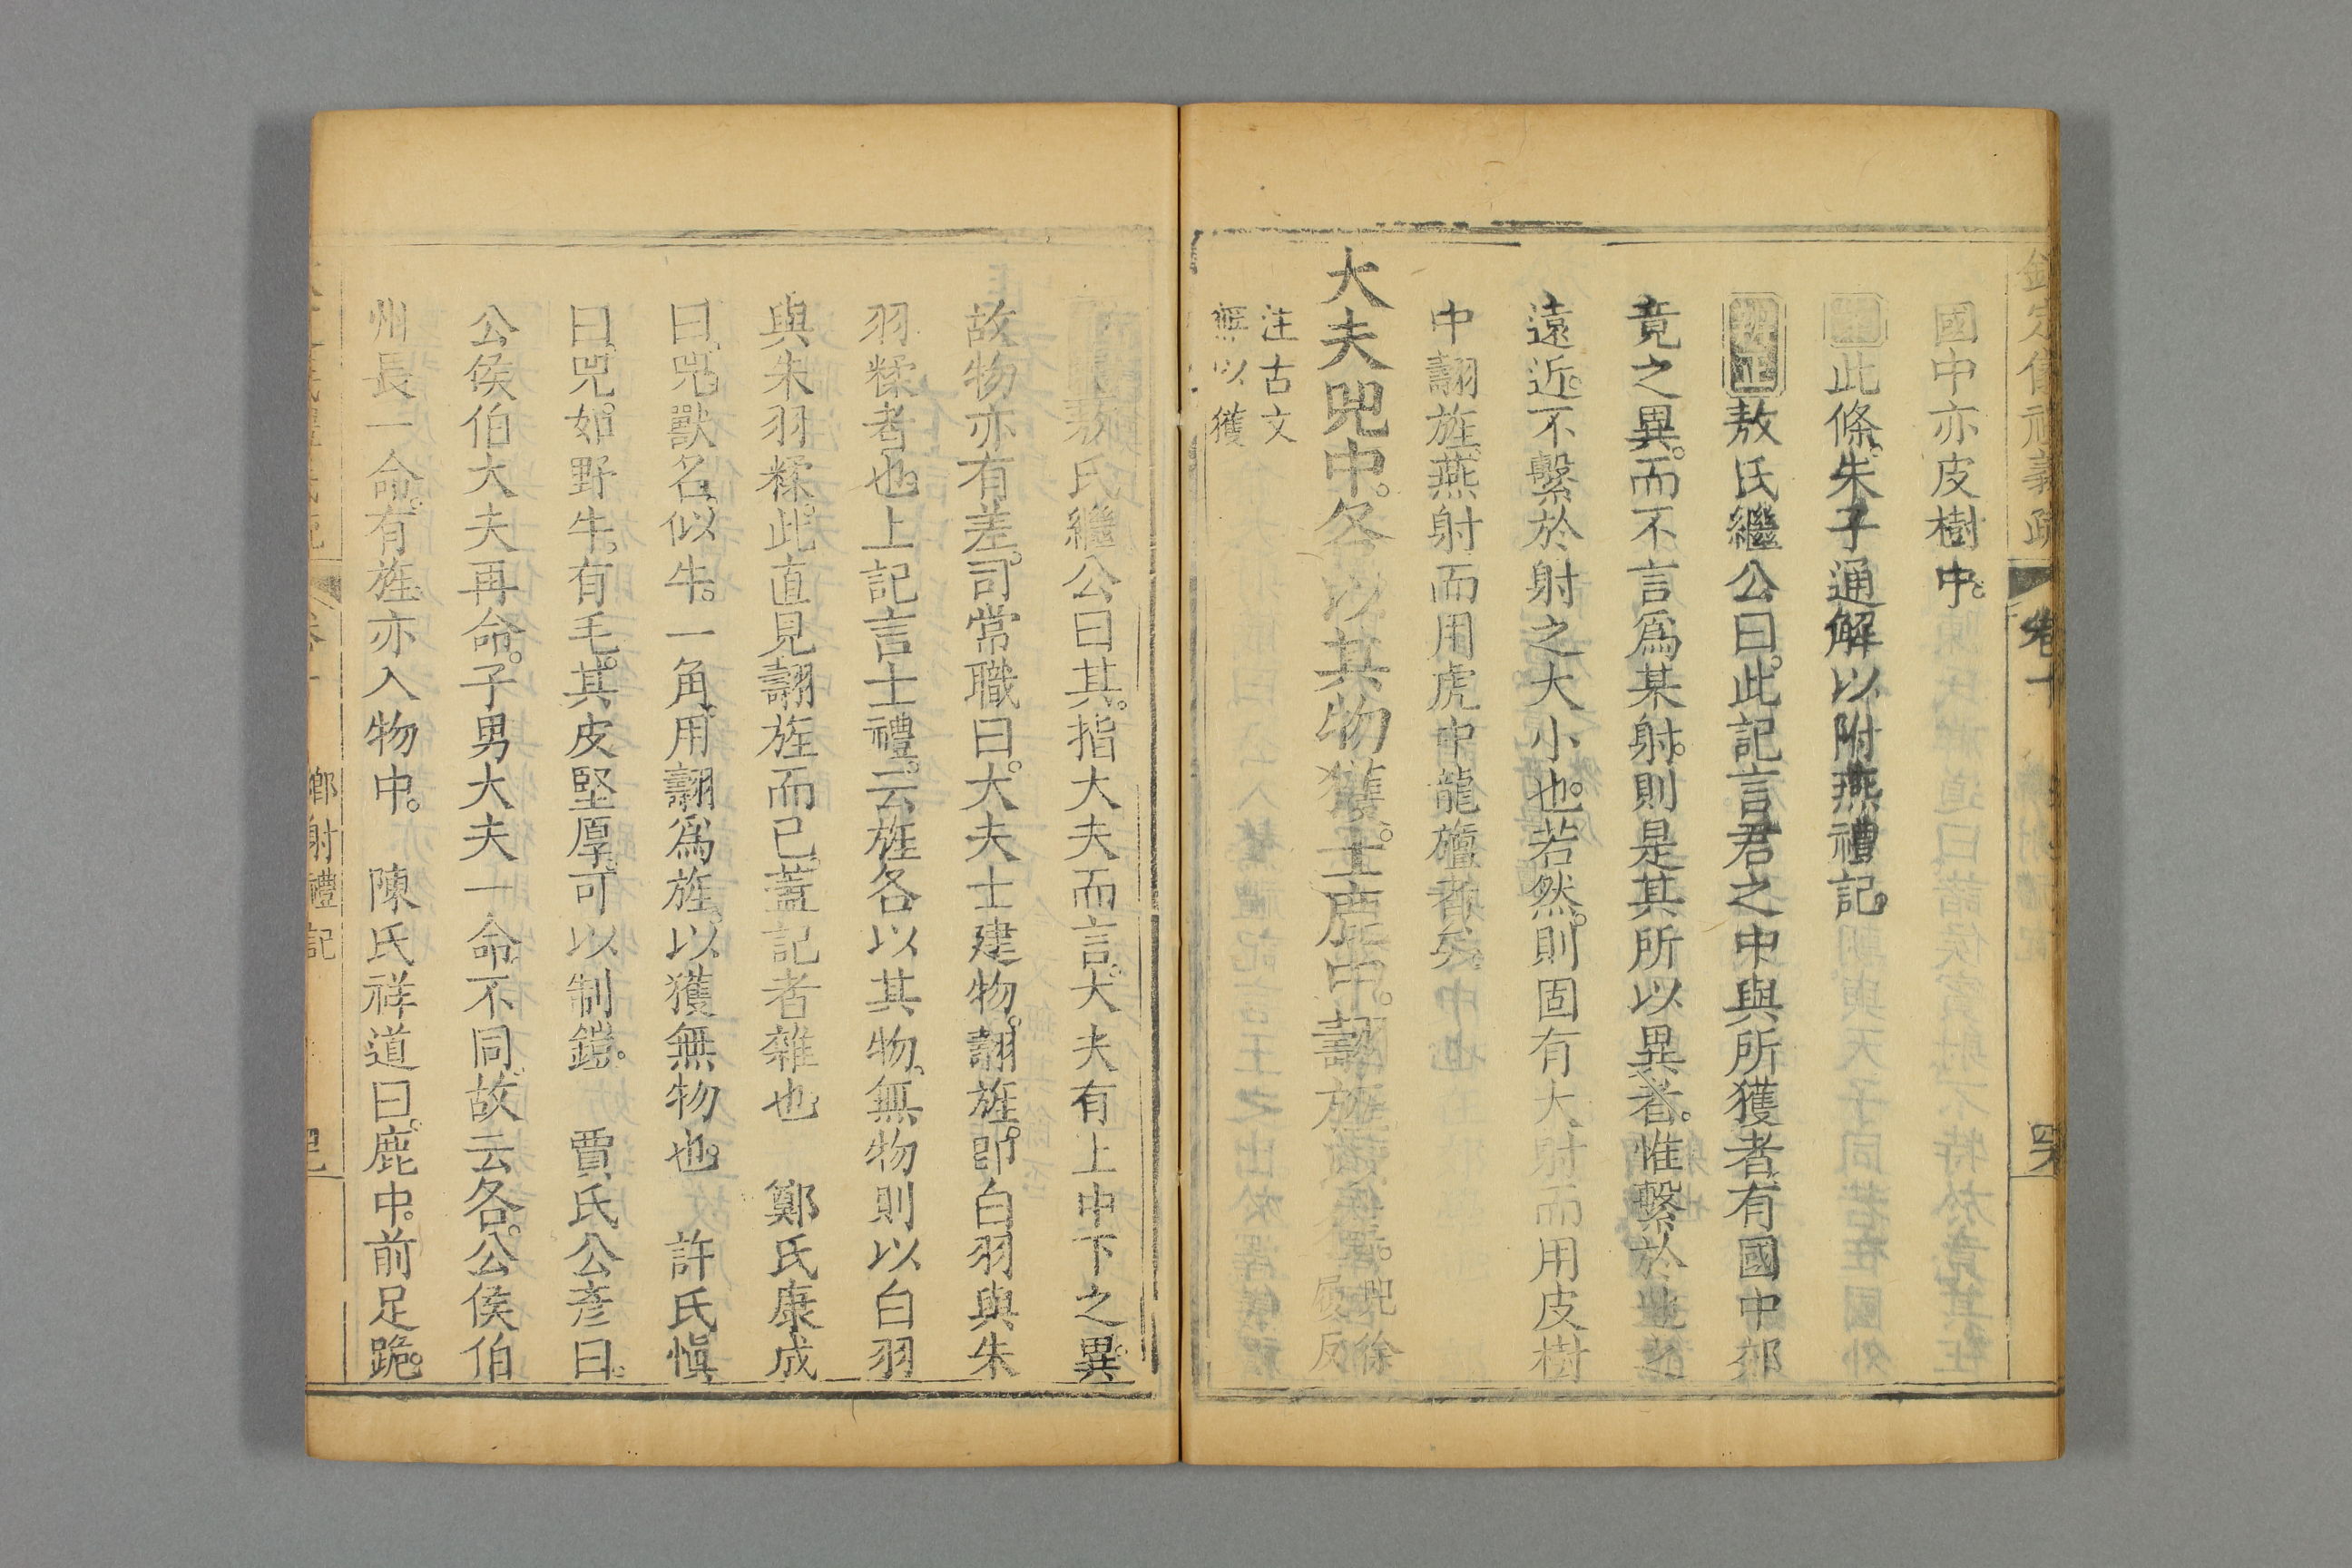 欽定儀禮義疏 卷十 四六
國中亦皮樹中。
此條。朱子通解以附燕禮記。
辨正敖氏繼公曰。此記言君之中與所獲者。有國中郊
竟之異。而不言爲某射。則是其所以異者。惟繫於地之
遠近。不繫於射之大小也。若然。則固有大射而用皮樹
中翿旌。燕射而用虎中龍旜者矣。
大夫兕中。各以其物獲。士鹿中。翿旌以獲。兕徐
履反
注古文
無以獲
敖氏繼公曰。其。指大夫而言。大夫有上中下之異。
故物亦有差。司常職曰。大夫士建物。翿旌。卽白羽與朱
羽糅者也。上記言士禮。云旌各以其物。無物則以白羽
與朱羽糅。此直見翿旌而已。蓋記者雜也 鄭氏康成
曰。兕。獸名。似牛。一角。用翿爲旌。以獲無物也。 許氏愼
曰。兕。如野牛。有毛。其皮堅厚。可以制鎧。 賈氏公彥曰。
公侯伯大夫再命。子男大夫一命。不同。故云各。公侯伯
州長一命。有旌。亦入物中。 陳氏祥道曰。鹿中。前足跪。
鄉射禮記